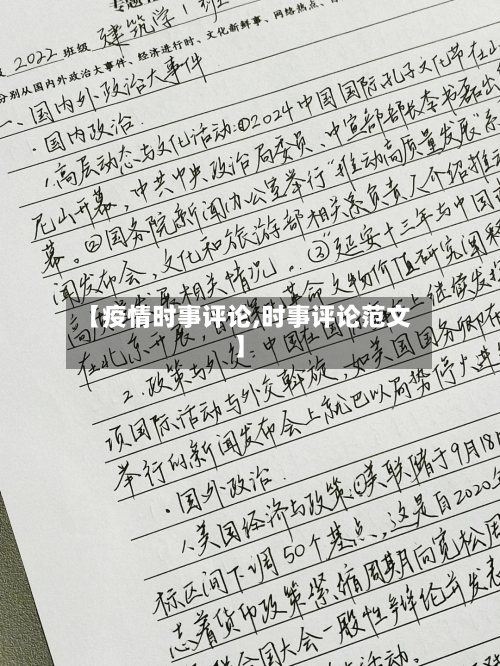 2022 班级 建筑学1班
分别从国内外政治大事件、经济进行时、文化新鲜事、网络热点、
一、国内外政治大事件
·国内政治.
1.高层动态与文化活动:①2024中国国际孔子文化节在山
尼山开幕，中共中央政治局委员、中宣部部长李书磊出
幕。②国务院新闻办公室举行“推动高质量发展”系
闻发布会，文化和旅游部相关负责人介绍推
高 相关情况。③“延安十三年与中国
在北京开展， 革命文物价值研究阐释
【疫情时事评论,时事评论范文
】
2.政策与外交：中国在国 上继续发
项国际活动与外交斡旋，如美国国务卿
举行的新闻发布会上就巴以局势停火进
·国外政治.
1.美国经济与政策①美联储于9月18
标区间下调50个基点，这是自2020年
志着货币政策紧缩周期向宽松周
联合国大会一般性辩论